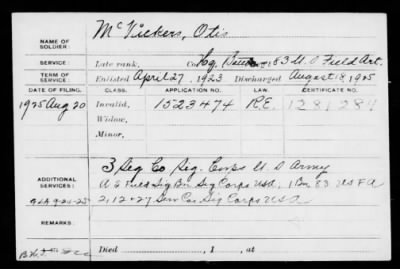 NAME OF SOLDIER: McVickers, Otis
SERVICE: Late rank, Co Hq. 83 U.S Field Art.
TERM OF SERVICE: Enlisted April 27, 1923 Discharged August 18, 1925
DATE OF FILING. CLASS. APPLICATION NO. LAW. CERTIFICATE NO.
1925 Aug 20 Invalid, 1523474 R.E. 1281284
Widow,
Minor,
ADDITIONAL SERVICES: 3 Sig Co Sig. Corps U.S Army
Field Sig Bn Sig Corps USA, 1 Bn 83 US FA
2, 12 + 27 Serv Co Sig Corps USA
REMARKS:
Died , 1 , at